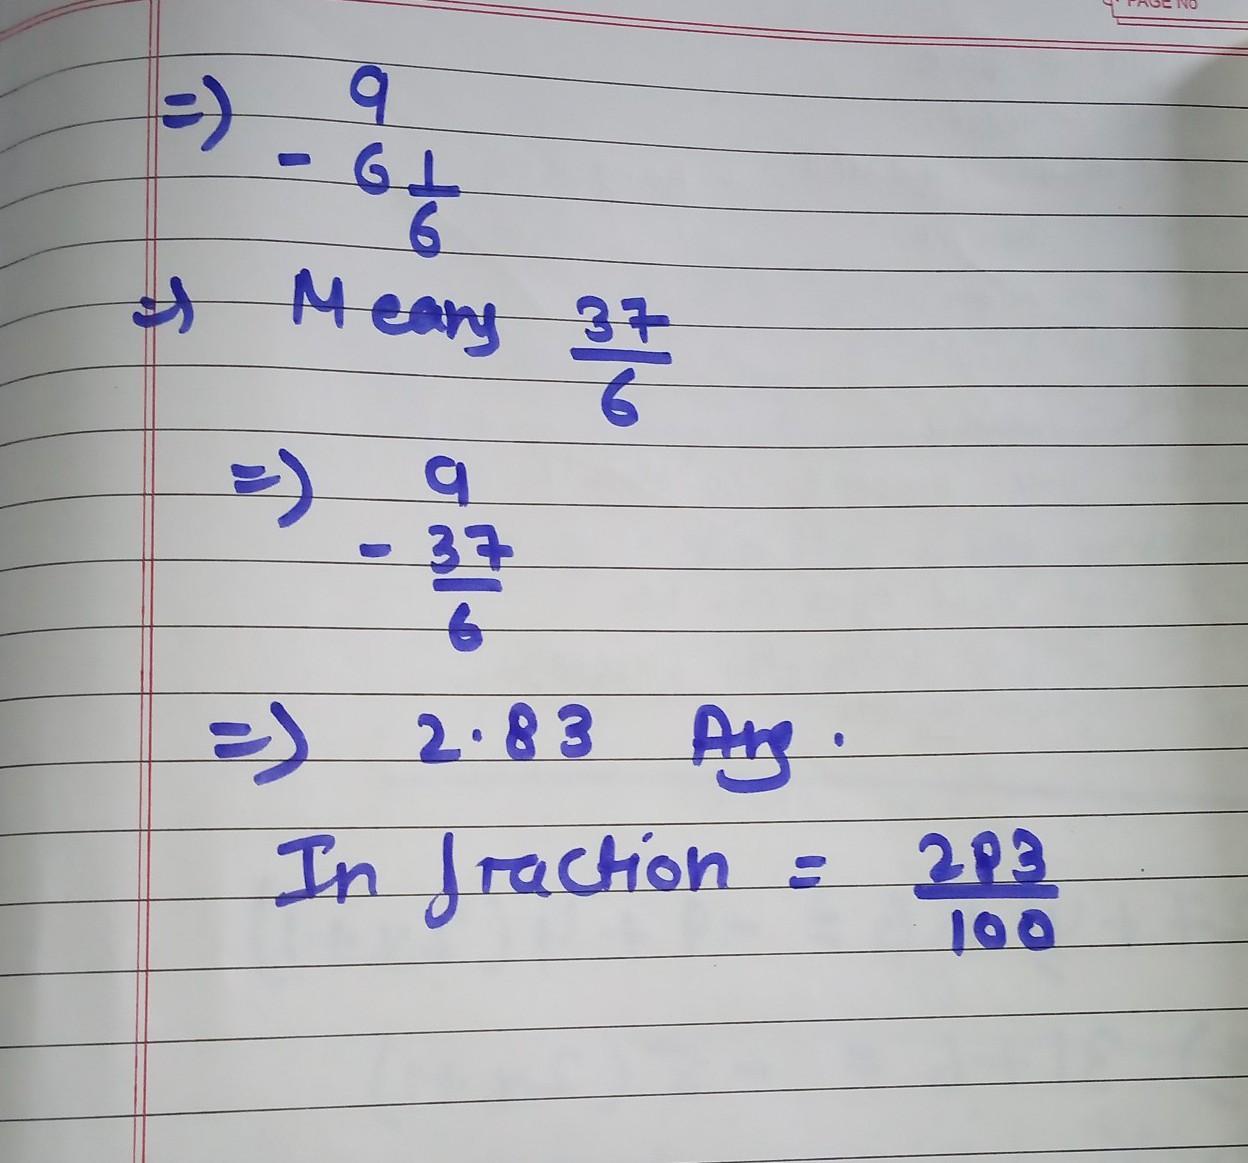 PAGE NO
=) 9
- 6 1/6
=) Means 37/6
=) 9
- 37/6
=) 2.83 Ans.
In fraction = 283/100